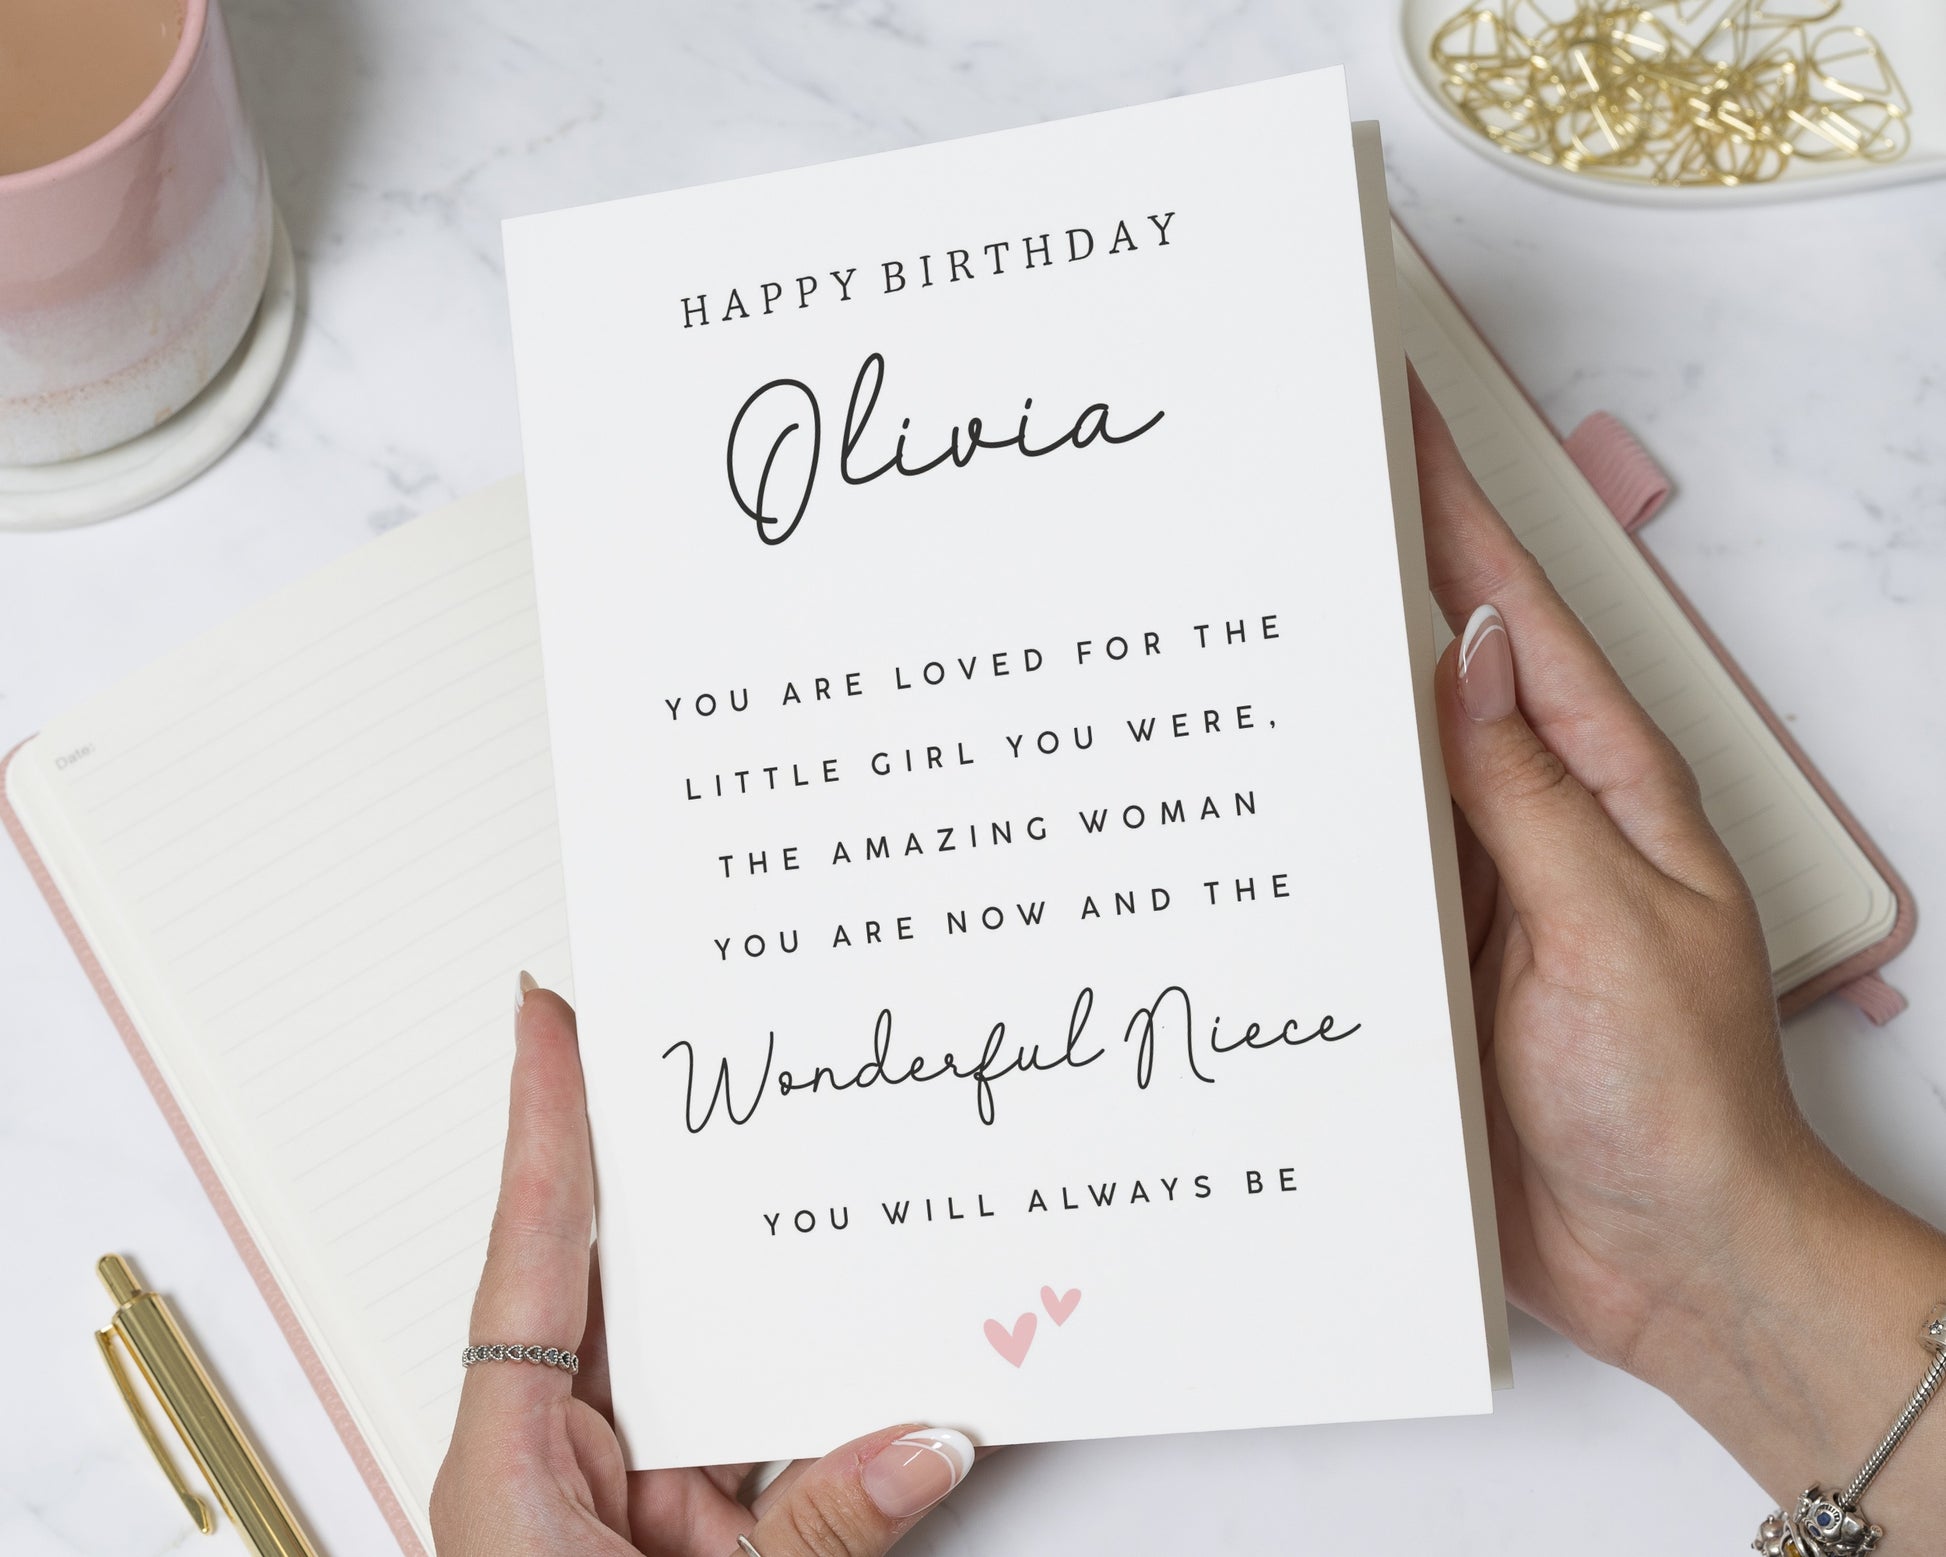 HAPPY BIRTHDAY
Olivia
YOU ARE LOVED FOR THE
LITTLE GIRL YOU WERE,
THE AMAZING WOMAN
YOU ARE NOW AND THE
Wonderful Niece
YOU WILL ALWAYS BE
Date: